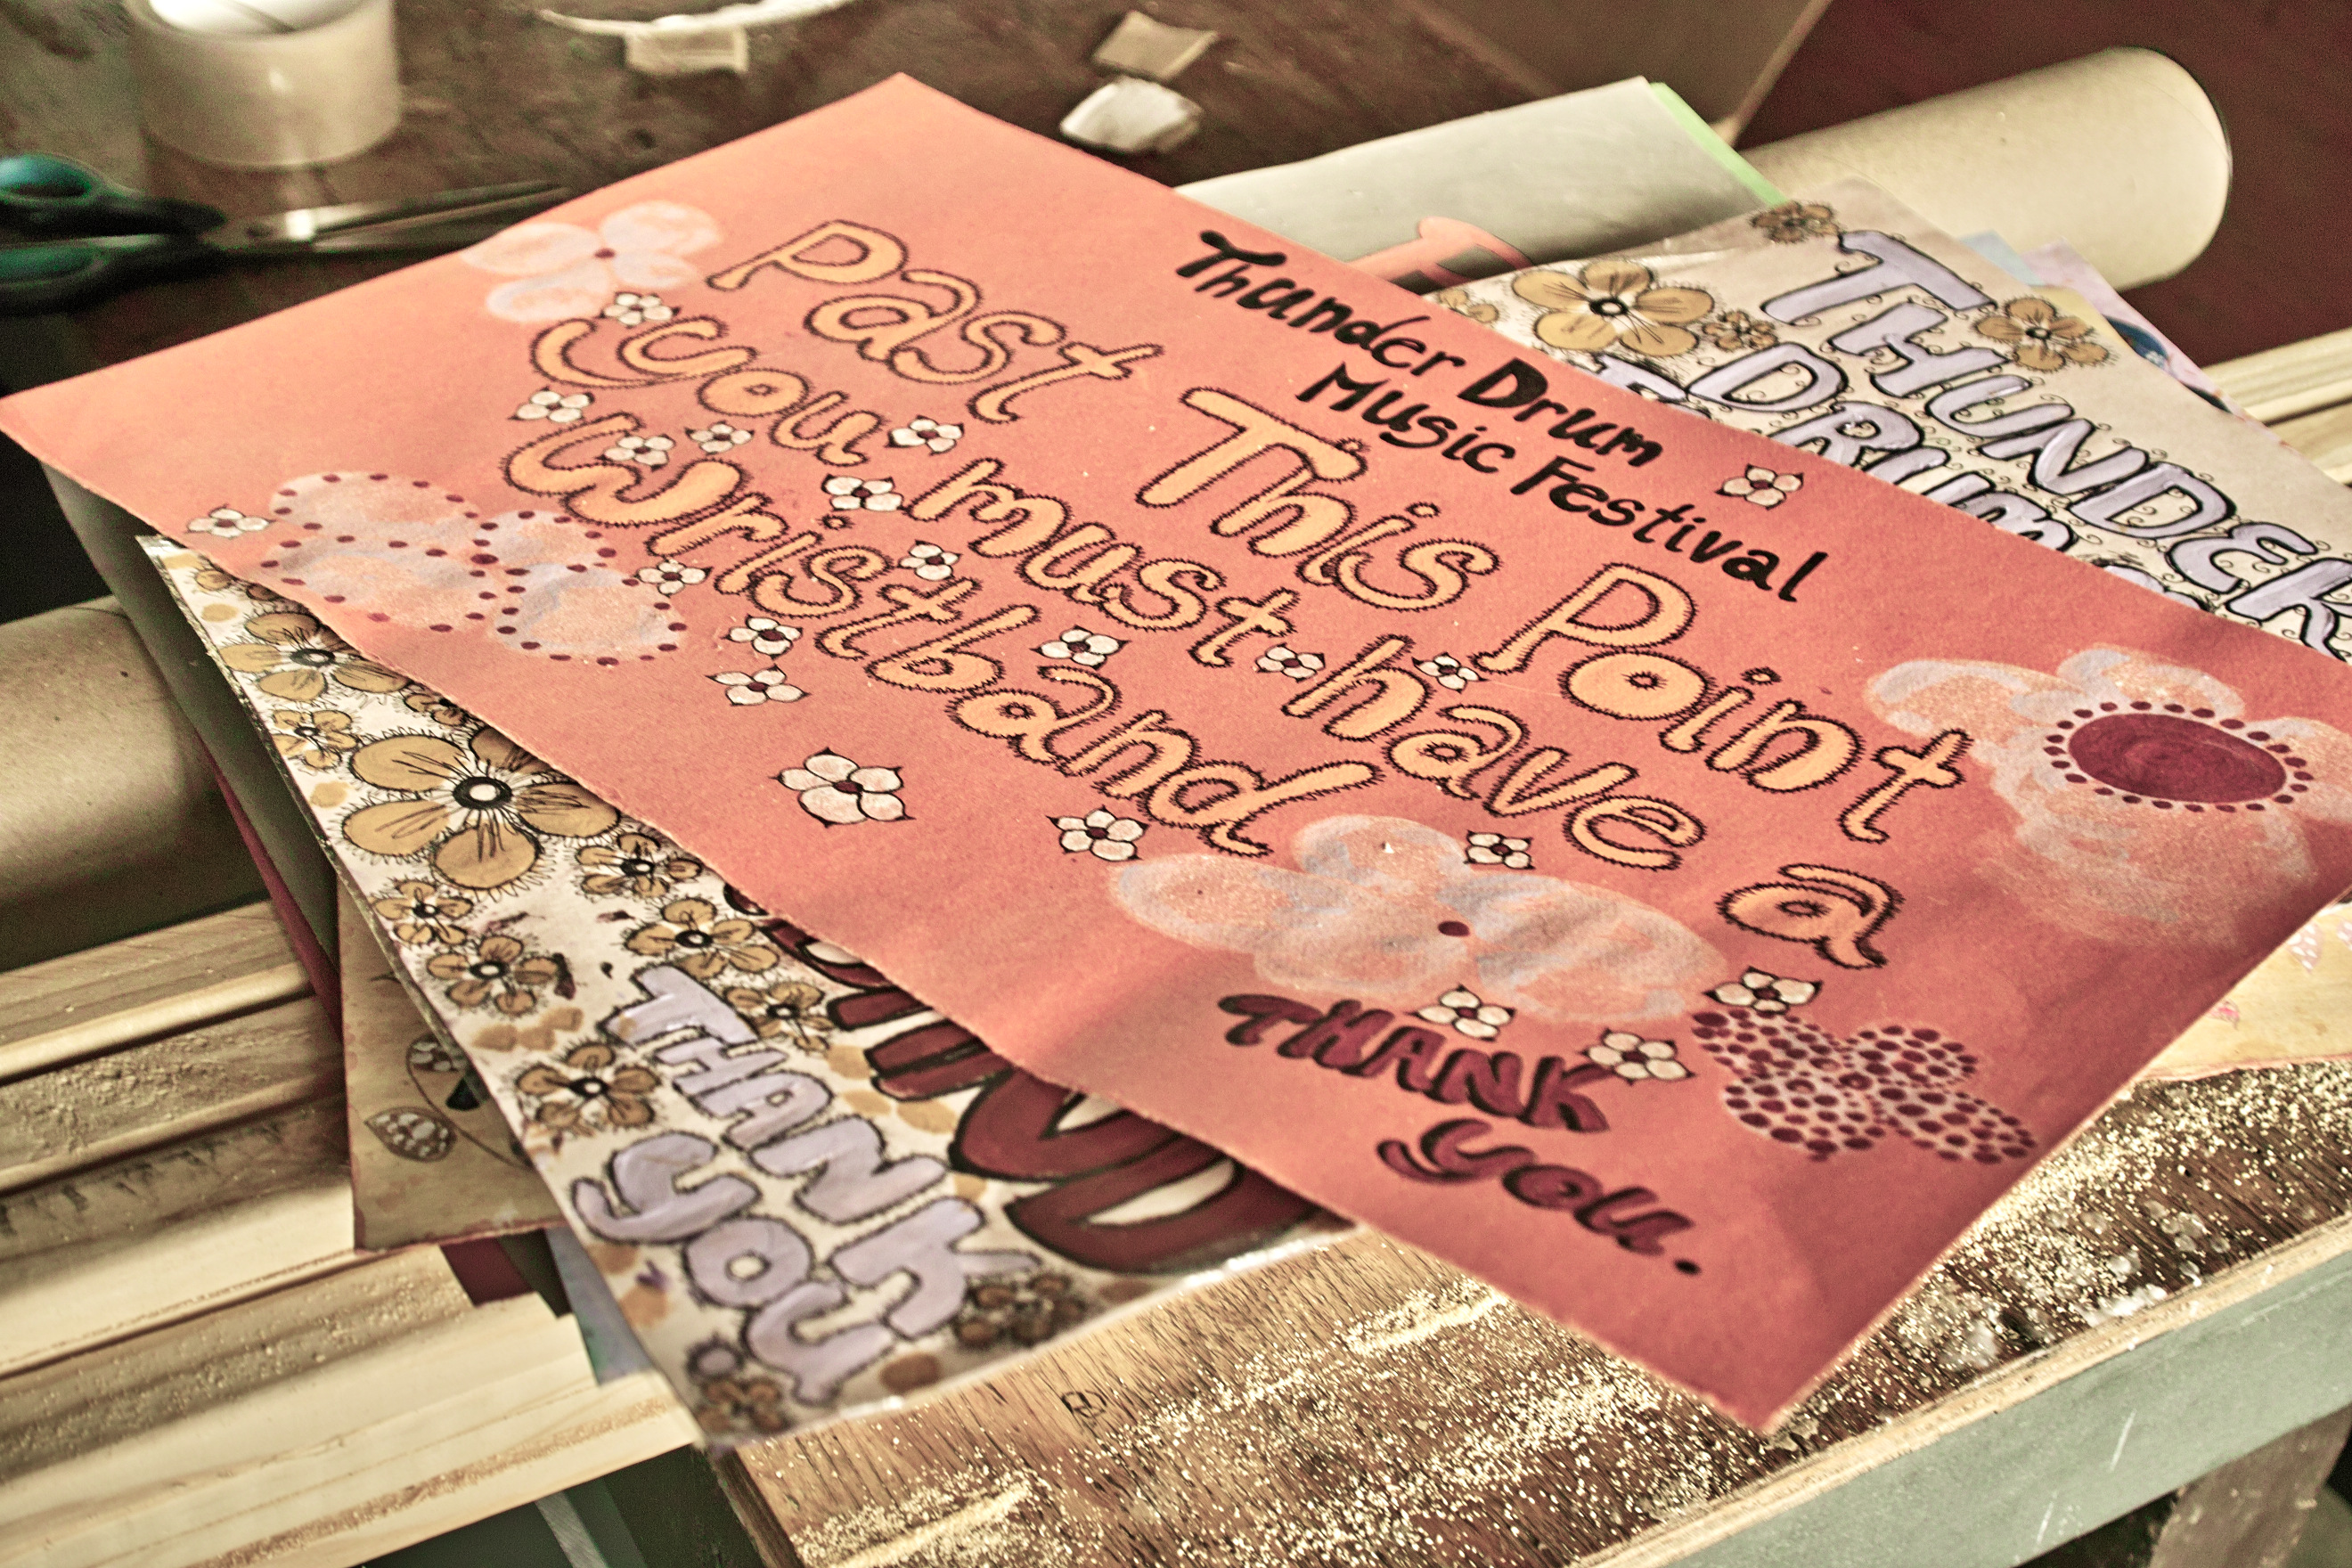 Thunder Drum
Music Festival
Past This Point
you must have a
wristband
THANK
you.
THUNDER
DRUM
THANK
you